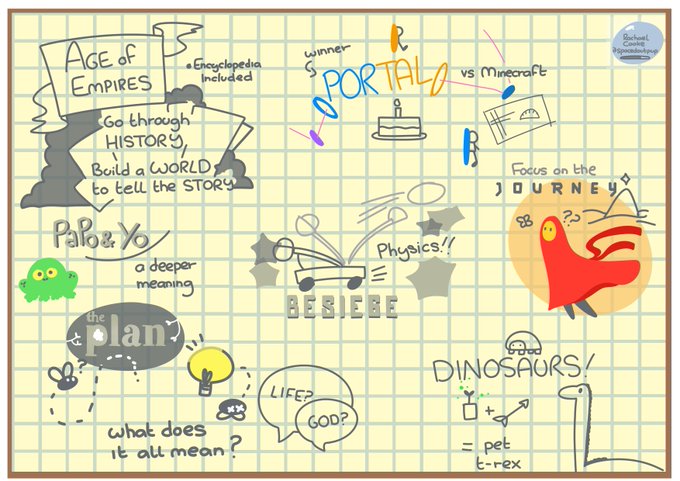 AGE OF
EMPIRES
• Encyclopedia
Included
Go through
HISTORY,
Build a WORLD
to tell the STORY
winner
PORTAL
vs Minecraft
Rachael
Cooke
@spacedoutpup
Focus on the
JOURNEY
??
PaPo & Yo
a deeper
meaning
Physics!!
BESIEGE
the
plan
?
what does
it all mean?
LIFE?
GOD?
DINOSAURS!
+
= pet
t-rex